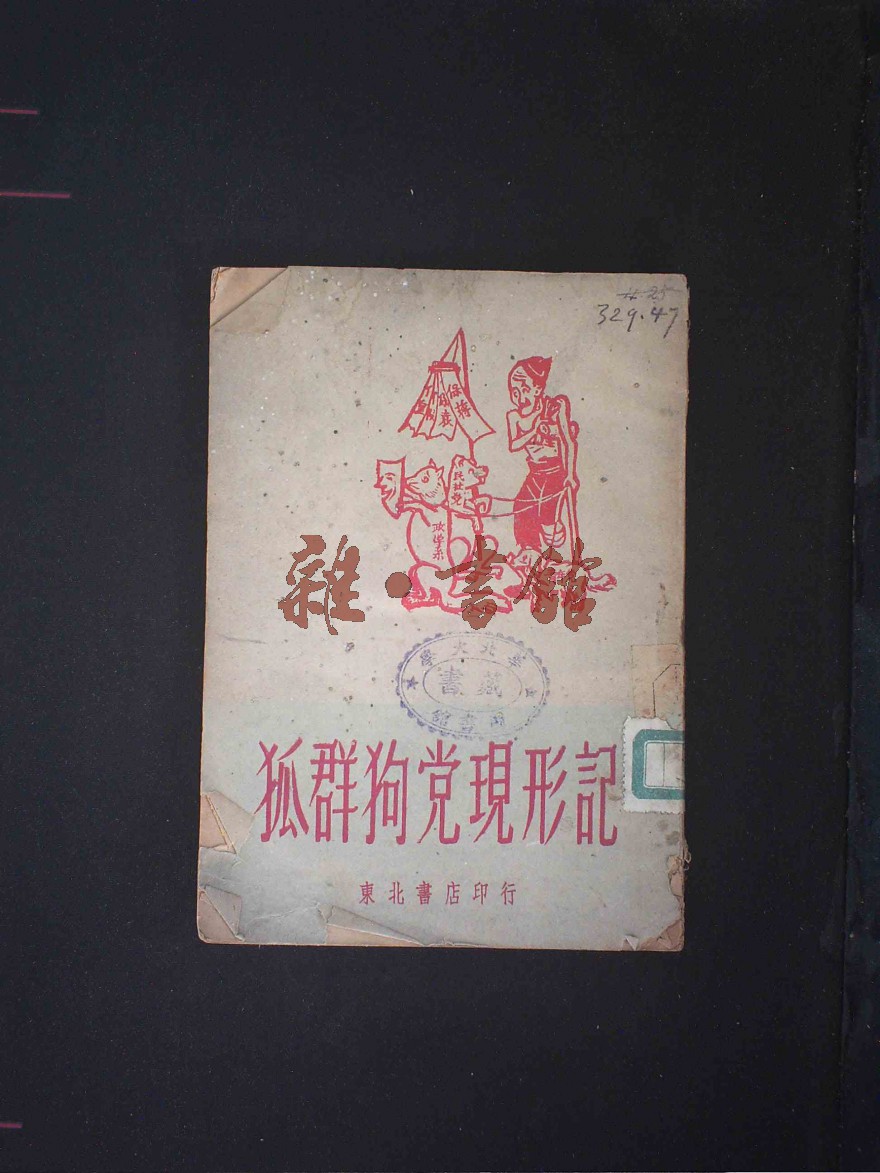 329.47
保蒋
民社党
政学系
雜·書館
華北大學
藏書
圖書館
狐群狗党現形記
東北書店印行